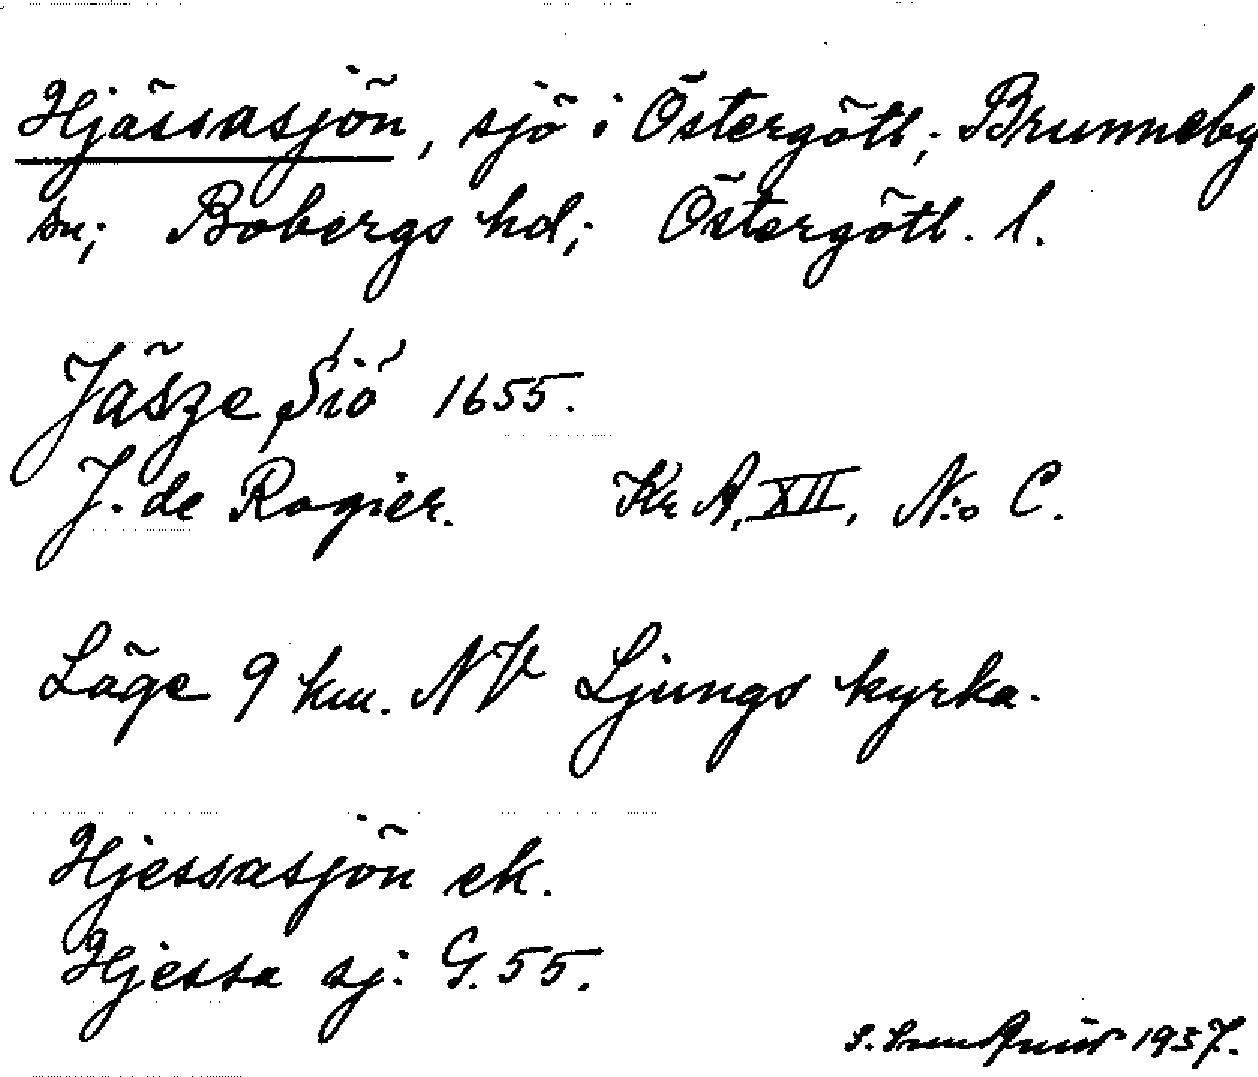 Hjässasjön, sjö i Östergötl; Brunneby
sn; Bobergs hd; Östergötl. l.
Jäsze Siö 1655.
J. de Rogier. Kr A, XII, N:o C.
Läge 9 km. NV Ljungs kyrka.
Hjessasjön ek.
Hjessa sj: G. 55.
1937.